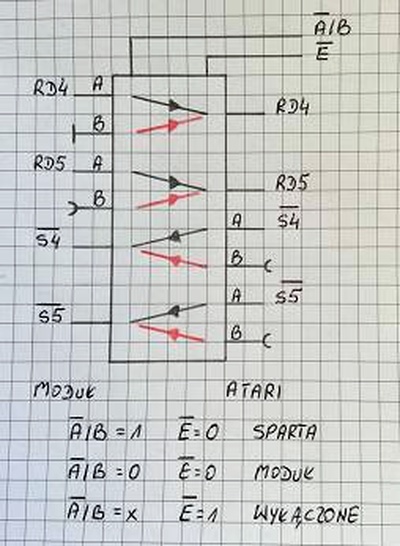 A̅/B
E̅
RD4 A RD4
B
RD5 A RD5
B
S̅4̅ A S̅4̅
B
S̅5̅ A S̅5̅
B
MODUŁ ATARI
A̅/B = 1 E̅ = 0 SPARTA
A̅/B = 0 E̅ = 0 MODUŁ
A̅/B = x E̅ = 1 WYŁĄCZONE